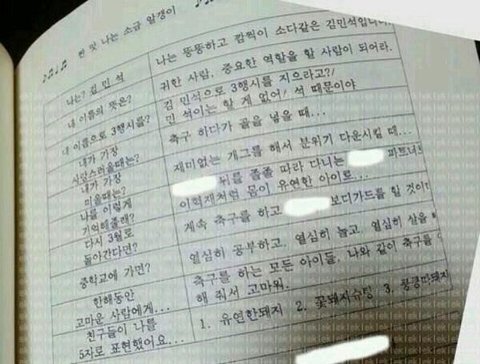 ♪♫♩♪ 한 핏 나는 소금 알갱이 ♪♫♩♪
나는? 김 민 석
나는 뚱뚱하고 깜찍이 소다같은 김민석입니다
내 이름의 뜻은?
귀한 사람, 중요한 역할을 할 사람이 되어라.
내 이름으로 3행시를?
김 민석으로 3행시를 지으라고?!
민 석이는 할 게 없어! 석 때문이야
내가 가장
축구 하다가 골을 넣을 때...
내가 가장
미울때는?
재미없는 개그를 해서 분위기 다운시킬 때...
나를 이렇게
기억해줄래?
뒤를 졸졸 따라 다니는 파트너
이혁재처럼 몸이 유연한 아이로...
다시 3월로
돌아간다면?
계속 축구를 하고 보디가드를 할 것이다
중학교에 가면?
열심히 공부하고, 열심히 놀고, 열심히 살을
한해동안
고마운 사람에게...
축구를 하는 모든 아이들, 나와 같이 축구를
해 줘서 고마워.
친구들이 나를
5자로 표현했어요...
1. 유연한돼지 2. 꽃돼지슈팅 3.